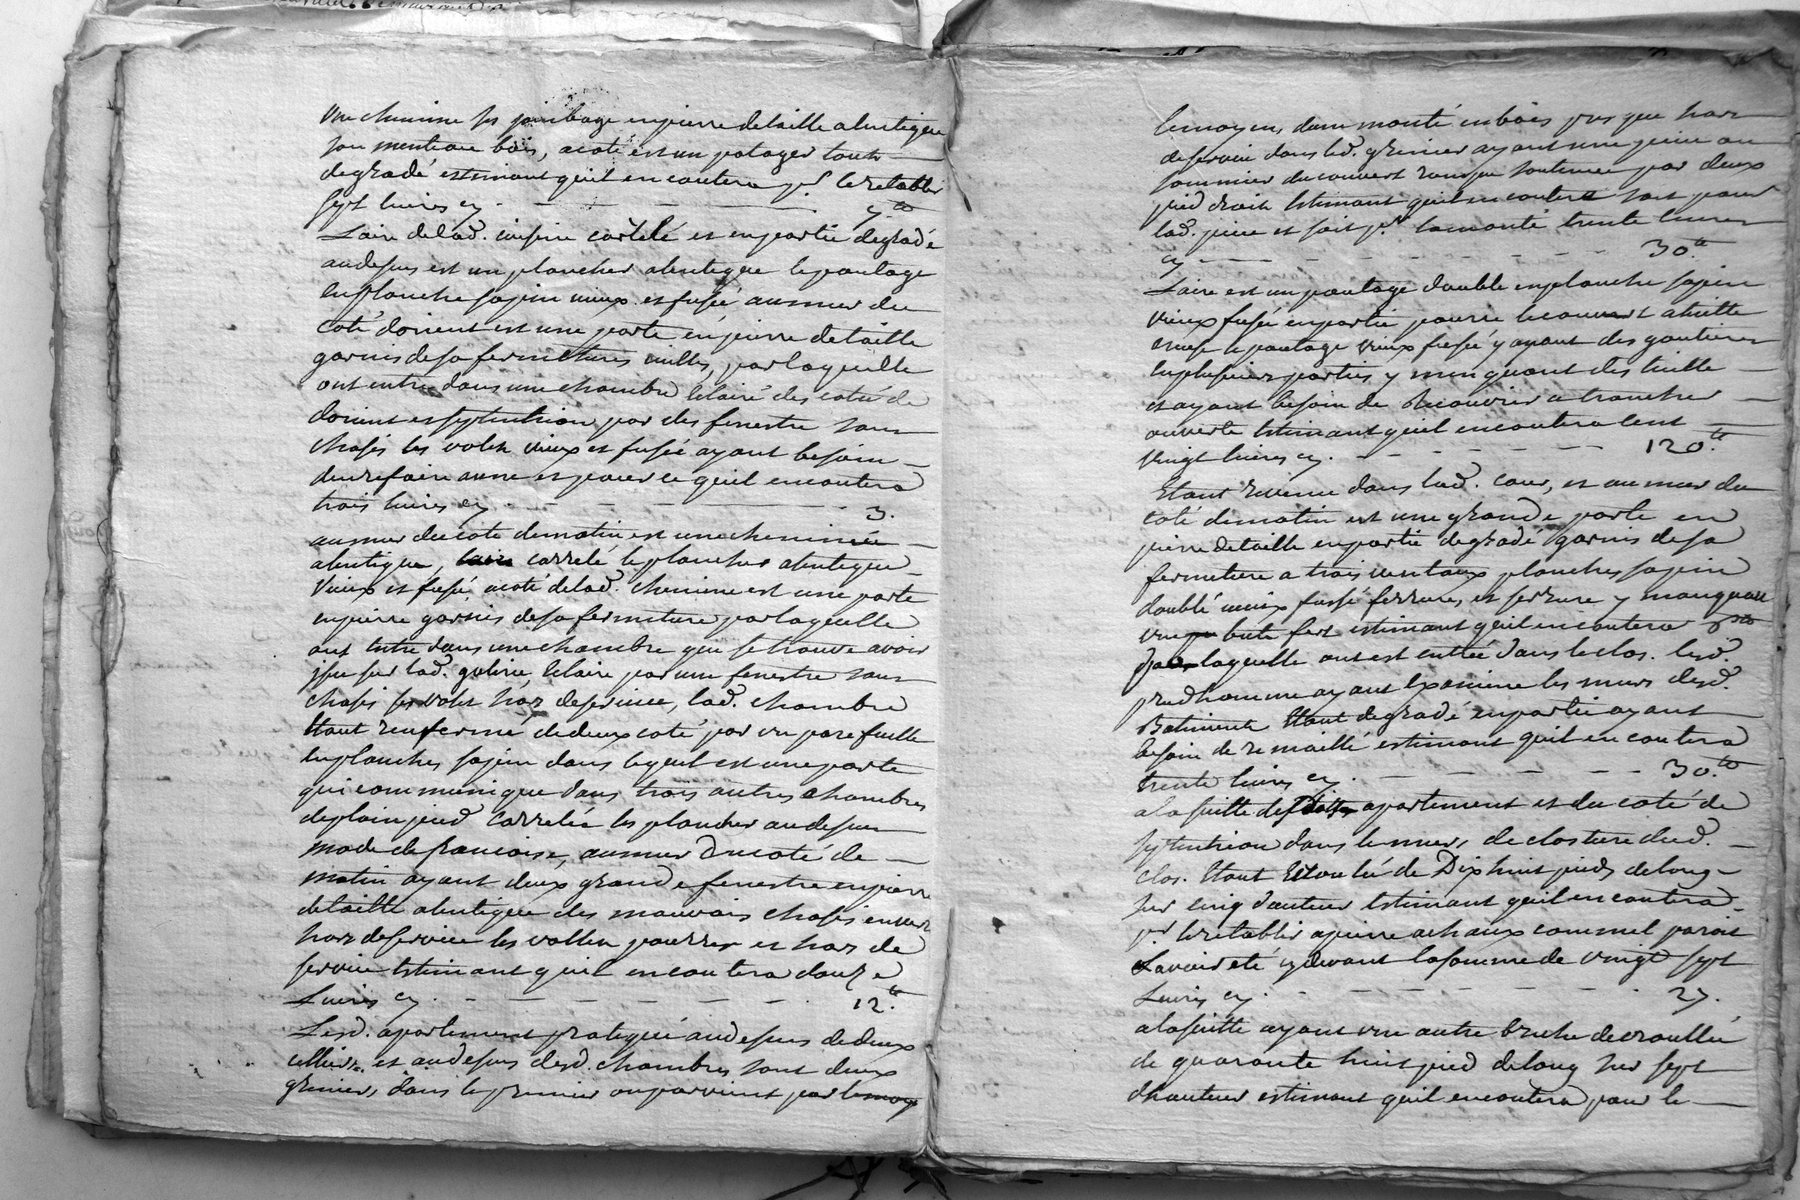 une cheminé ses jambage en pierre de taille alentique
son menteau bois, acoté est un potager tout
degradé estimant quil en coutera pr le retablir
sept livres cy 7.tt
Laire delad. cuisine cartelé et en partie degradé
audesus est un plancher alentique le pontage
en planche sapin vieux et fusée aumur du
coté dorient est une porte en pierre detaille
garnis desa fermeture, par laquelle
ont entre dans une chambre Eclairé des coté de
dorient et septentrion par des fenestre sans
chasis les volets vieux et fusée ayant besoin
den refaire une et pour ce quil en coutera
trois livres cy 3.
aumur du coté dematin est une cheminée
alentique, carrelé le plancher alentique
Vieux et fusé, acoté delad. cheminé est une porte
en pierre garnis desa fermeture par laquelle
ont entre dans une chambre qui se trouve avoir
jsue sur lad. galerie, Eclaire par une fenestre sans
chasis ses volet hors deservice, lad. chambre
Etant renfermé dedeux coté par un parefuelle
en planches sapin dans lequel est une porte
qui communique dans trois autres chambres
deplain pied Carrelés les plancher audesus
mode defrancoise, aumur du coté de
matin ayant deux grande fenestre en pierre
detaille alentique des mauvais chasis
hors deservice les vollets pourris et hors de
service Estimant quil en coutera douze
Livres cy 12.tt
Lesd. apartement pratiqué audesus dedeux
celliers et audesus desd. chambres sont deux
greniers, dans le premier on parvient par le moy
le moyens dune monté en bois presque hors
deservice dans led. grenier ayant une piece au
sommier du couvert rompu soutenue par deux
pied droit Estimant quil en coutera soit pour
lad. piece et soit pr lamonté trente livres
cy 30.tt
Laire est un pontage double en planche sapin
vieux fusé en partie pourrie le couvert atuille
creuse le pontage vieux fusée y ayant des goutieres
en plusieurs parties y menquant des tuille
et ayant besoin de Recouvrir a trancher
ouverte Estimant quil en coutera cent
vingt livres cy 120.tt
Etant revenu dans lad. Cour, et aumur du
coté dematin est une grande porte en
pierre detaille en partie degradé garnis desa
fermeture a trois ventaux planches sapin
doublé vieux fussé ferrures, et serrure y manquant
une bute fert estimant quil en coutera
par laquelle ont est entrée dans le clos. Lesd.
prudhomme ayant Examiné les murs desd.
Batiments Etant degradé en partie ayant
besoin de remaillé estimant quil en coutera
trente livres cy 30.tt
alasuitte apartement et du coté de
septentrion dans le murs de closture dud.
clos. Etant Ecroulé de Dixhuit pieds delong
sur cinq dauteur Estimant quil en coutera
pr le retablir apierre achaux comme il paroit
Lavoir eté cydevant la somme de vingt sept
Livres cy 27.
alasuitte ayant une autre breche decroullée
de quarante huit pied delong sur sept
dhauteur estimant quil en coutera pour le